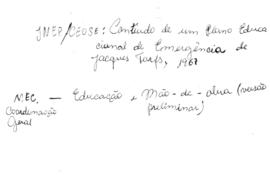 INEP/CEOSE: Conteúdo de um Plano Educa
cional de Emergência de
Jacques Torfs, 1967
MEC. — Educação e Mão-de-obra (versão
Coordenação preliminar)
Geral